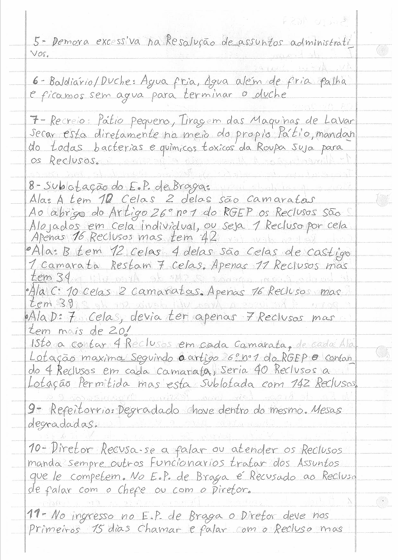 5- Demora excessiva na Resolução de assuntos administrati
vos.
6- Baldiário/Duche: Agua fria, Agua além de fria falha
e ficamos sem agua para terminar o duche
7- Recreio: Pátio pequeno, Tiragem das Maquinas de Lavar
Secar esta diretamente no meio do propio Pátio, mandan
do todas bacterias e quimicos toxicos da Roupa Suja para
os Reclusos.
8- Sublotação do E.P. de Braga:
Ala: A tem 10 Celas 2 delas são Camaratas
Ao abrigo do Artigo 26º nº1 do RGEP os Reclusos são
Alojados em cela individual, ou Seja 1 Recluso por cela
Apenas 16 Reclusos mas tem 42
•Ala: B tem 12 Celas 4 delas são Celas de Castigo
1 Camarata Restam 7 Celas. Apenas 11 Reclusos mas
tem 39
•Ala C: 10 Celas 2 Camaratas. Apenas 16 Recluso mas
tem 39
•Ala D: 7 Celas, devia ter apenas 7 Reclusos mas
tem mais de 20!
Isto a contar 4 Reclusos em cada Camarata,
Lotação maxima Seguindo o artigo 26º nº1 do RGEP e contan
do 4 Reclusos em cada Camarata, Seria 40 Reclusos a
Lotação Permitida mas esta Sublotada com 142 Reclusos.
9- Refeitorrio: Degradado chove dentro do mesmo. Mesas
degradadas.
10- Diretor Recusa-se a falar ou atender os Reclusos
manda Sempre outros Funcionarios tratar dos Assuntos
que le competem. No E.P. de Braga é Recusado ao Recluso
de falar com o Chefe ou com o Diretor.
11- No ingresso no E.P. de Braga o Diretor deve nos
Primeiros 15 dias Chamar e falar com o Recluso mas